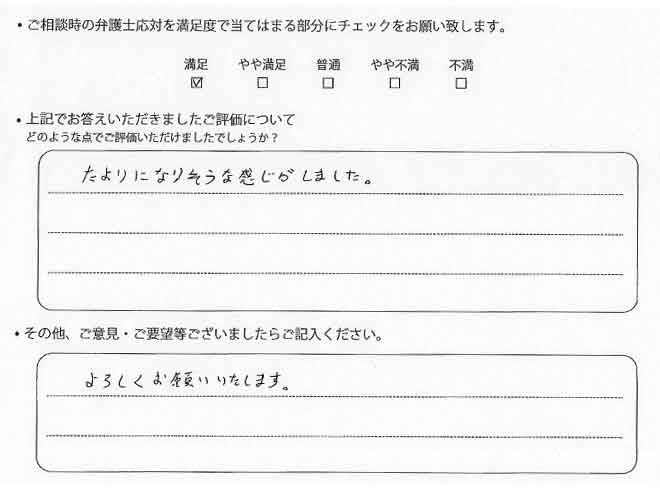 ・ご相談時の弁護士応対を満足度で当てはまる部分にチェックをお願い致します。
満足 やや満足 普通 やや不満 不満
☑ ☐ ☐ ☐ ☐
・上記でお答えいただきましたご評価について
どのような点でご評価いただけましたでしょうか？
たよりになりそうな感じがしました。
・その他、ご意見・ご要望等ございましたらご記入ください。
よろしくお願いいたします。